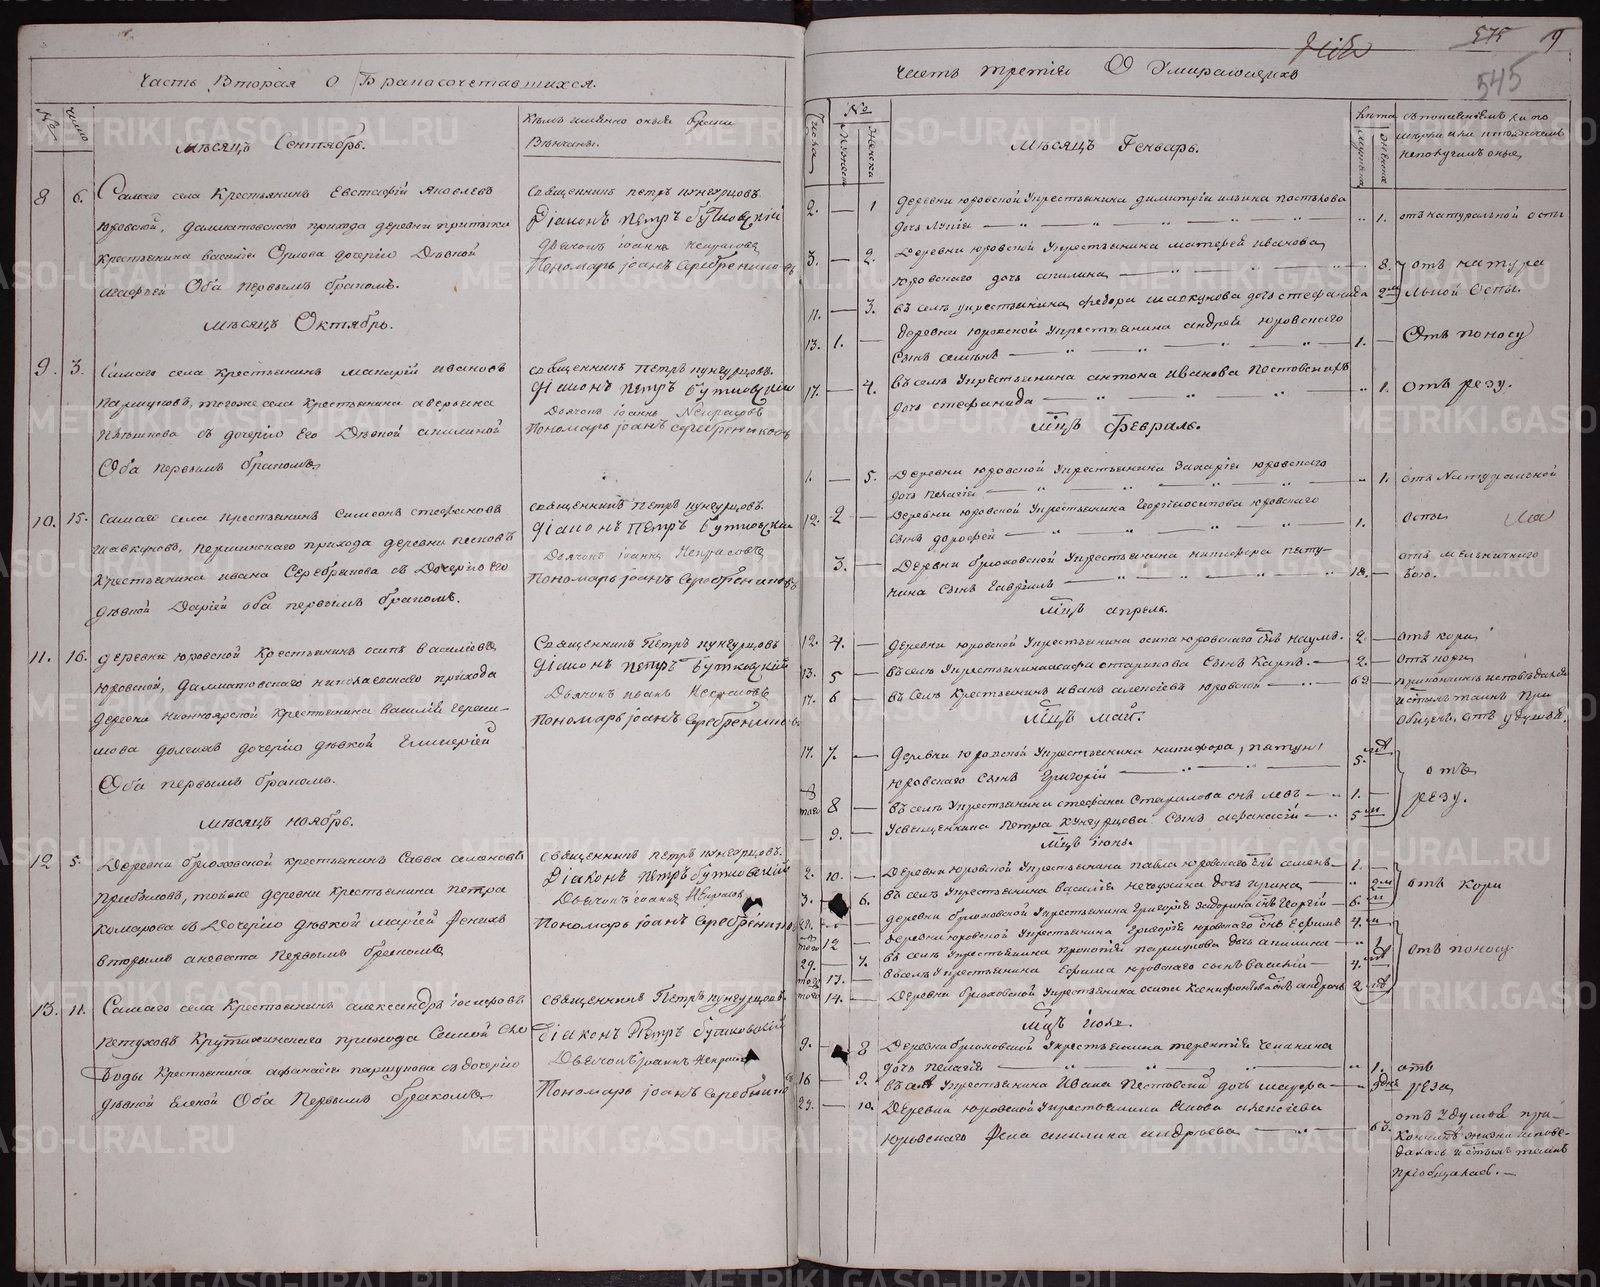 Часть Вторая О Бракасочетавшихся.
№
число
Мѣсяцъ Сентябрь.
Кѣмъ именно оныя браки
Вѣнчаны.
8 6. Самаго села Крестьянинъ Евстафій Яковлевъ
Юровской, Далматовскаго прихода деревни притыки
крестьянина василія Орлова дочерію Дѣвкой
Агафьей Оба первымъ бракомъ.
Священникъ петръ кунгурцовъ.
Діаконъ Петръ бутковскій
Дьячокъ іоаннъ Некрасовъ
Пономарь іоаннъ Серебренниковъ
Мѣсяцъ Октябрь.
9. 3. Самаго села крестьянинъ макарій ивановъ
Паршуковъ, тогоже села Крестьянина аверьяна
съ дочерію его Дѣвкой акилиной
Оба первымъ бракомъ
священникъ Петръ кунгурцовъ.
діаконъ петръ бутковскій
Дьячокъ іоаннъ Некрасовъ
Пономарь іоаннъ серебренниковъ
10. 15. Самаго села крестьянинъ симеонъ стефановъ
шавкуновъ, першинскаго прихода деревни песковъ
Крестьянина ивана Серебрякова съ Дочерію его
дѣвкой Дарьей оба первымъ бракомъ.
священникъ Петръ кунгурцовъ.
діаконъ Петръ бутковскій
Дьячокъ іоаннъ Некрасовъ
пономарь іоаннъ Серебренниковъ
11. 16. деревни юровской Крестьянинъ осипъ василіевъ
юровской, Далматовскаго николаевскаго прихода
деревни Крестьянина василія гераси-
мова дочерію дѣвкой Гликерией
Оба первымъ бракомъ.
Священникъ Петръ кунгурцовъ
діаконъ петръ бутковскій
Дьячокъ иванъ Некрасовъ
Пономарь іоаннъ Серебренниковъ
Мѣсяцъ ноябрь.
12 5. Деревни брюховской крестьянинъ Савва семеновъ
Прибыловъ, тойже деревни крестьянина петра
комарова съ Дочерію дѣвкой маріей Женихъ
вторымъ а невѣста Первымъ бракомъ
священникъ петръ кунгурцовъ.
Діаконъ Петръ бутковскій
Дьячокъ іоаннъ Некрасовъ
Пономарь іоаннъ Серебренниковъ
13. 11. Самаго села Крестьянинъ александръ іосифовъ
петуховъ Крутихинскаго прихода Самой Сло
боды Крестьянина афанасія паршукова съ дочерію
дѣвкой Еленой Оба Первымъ бракомъ
священникъ Петръ кунгурцовъ.
діаконъ Петръ бутковскій
Дьячокъ іоаннъ Некрасовъ
Пономарь іоаннъ Серебренниковъ
575 9
545
часть третія О Умирающихъ
Числа
№
Мужеск
Женска
Мѣсяцъ Генварь.
Лѣта
Мужеска
Женска
неполучилъ оныя
2. — 1 деревни юровской Укрестьянина димитрія ильина постькова
дочь — 1. отъ натуральной оспы
3. — 2. Деревни юровской Укрестьянина матфея иванова
Юровскаго дочь акилина — 8. отъ натура
11. — 3. въ селѣ укрестьянина федора шавкунова дочь стефанида 2 льной Оспы.
13. 1. — деревни юровской Укрестьянина андрея юровскаго
Сынъ — 1. — Отъ поносу
17. — 4. въ селѣ Укрестьянина антона иванова Пестовскихъ
дочь стефанида — 1. отъ резу.
мцъ Февраль.
1. — 5. Деревни юровской Укрестьянина Захарія юровскаго
дочь пелагія — 1. отъ Натуральной
12. 2 — деревни юровской Укрестьянина Георгія осипова юровскаго
сынъ дорофей — 1. — оспы
3. — Деревни брюховской Укрестьянина никифора пету-
хина Сынъ Гавріилъ — 18. — отъ мельничнаго
бою.
мцъ апрель.
12. 4. — деревни юровской Укрестьянина осипа юровскаго снъ наумъ. 2 — отъ кори
13. 5 — въ селѣ Укрестьянина старикова Сынъ Карпъ. — 2. — отъ кори
17. 6 — въ селѣ Крестьянинъ иванъ алексіевъ юровской — 62 — прикончинѣ исповѣданъ
и стыхъ таинъ при
общенъ, отъ удушья.
мцъ май.
17. 7. — деревни юровской Укрестьянина никифора
юровскаго Сынъ Григорій — 5. отъ
того 8 — въ селѣ Укрестьянина стефана Старикова снъ левъ — 1. — резу.
— 9. — Усвященника Петра Кунгурцова Сынъ афанасій — 5
мцъ іюнь.
2. 10. — деревни юровской Укрестьянина павла юровскаго снъ семенъ — 1.
3. 6. въ селѣ Укрестьянина василія дочь ирина — 2 отъ кори
деревни брюховской Укрестьянина Григорія задорина снъ Георгій — 6.
того 12 — деревни юровской Укрестьянина Григорія юровскаго снъ Ефимъ 4.
29. — 7. въ селѣ Укрестьянина прокопія паршукова дочь акилина — 1 отъ поносу
того 13. — въ селѣ Укрестьянина Ефима юровскаго сынъ василій — 4.
того 14. — деревни брюховской Укрестьянина осипа ксенофонтова снъ андрей 2
мцъ іюля.
9. 8 деревни брюховской Укрестьянина терентія чеканина
дочь пелагія — 1. отъ
16 — 9. въ селѣ Укрестьянина ивана Пестовскій дочь — реза
23. — 10. деревни юровской Укрестьянина Якова алексіева
юровскаго Жена акилина андреева — 63. отъ удушья при-
кончинѣ жизни испове-
далась и стыхъ таинъ
пріобщалась. —